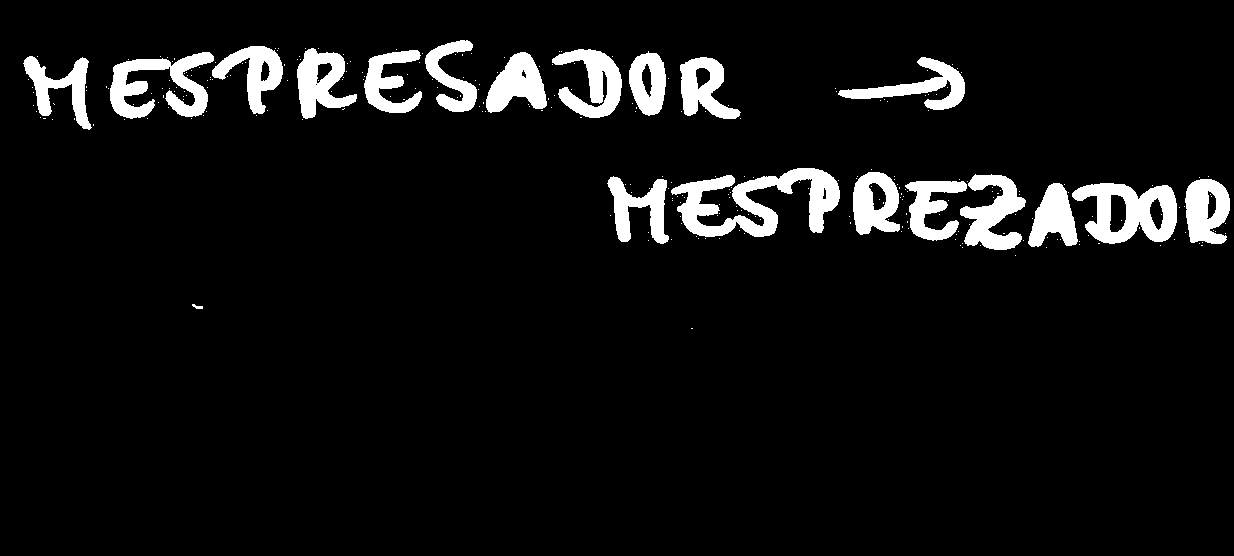 MESPRESADOR →
MESPREZADOR